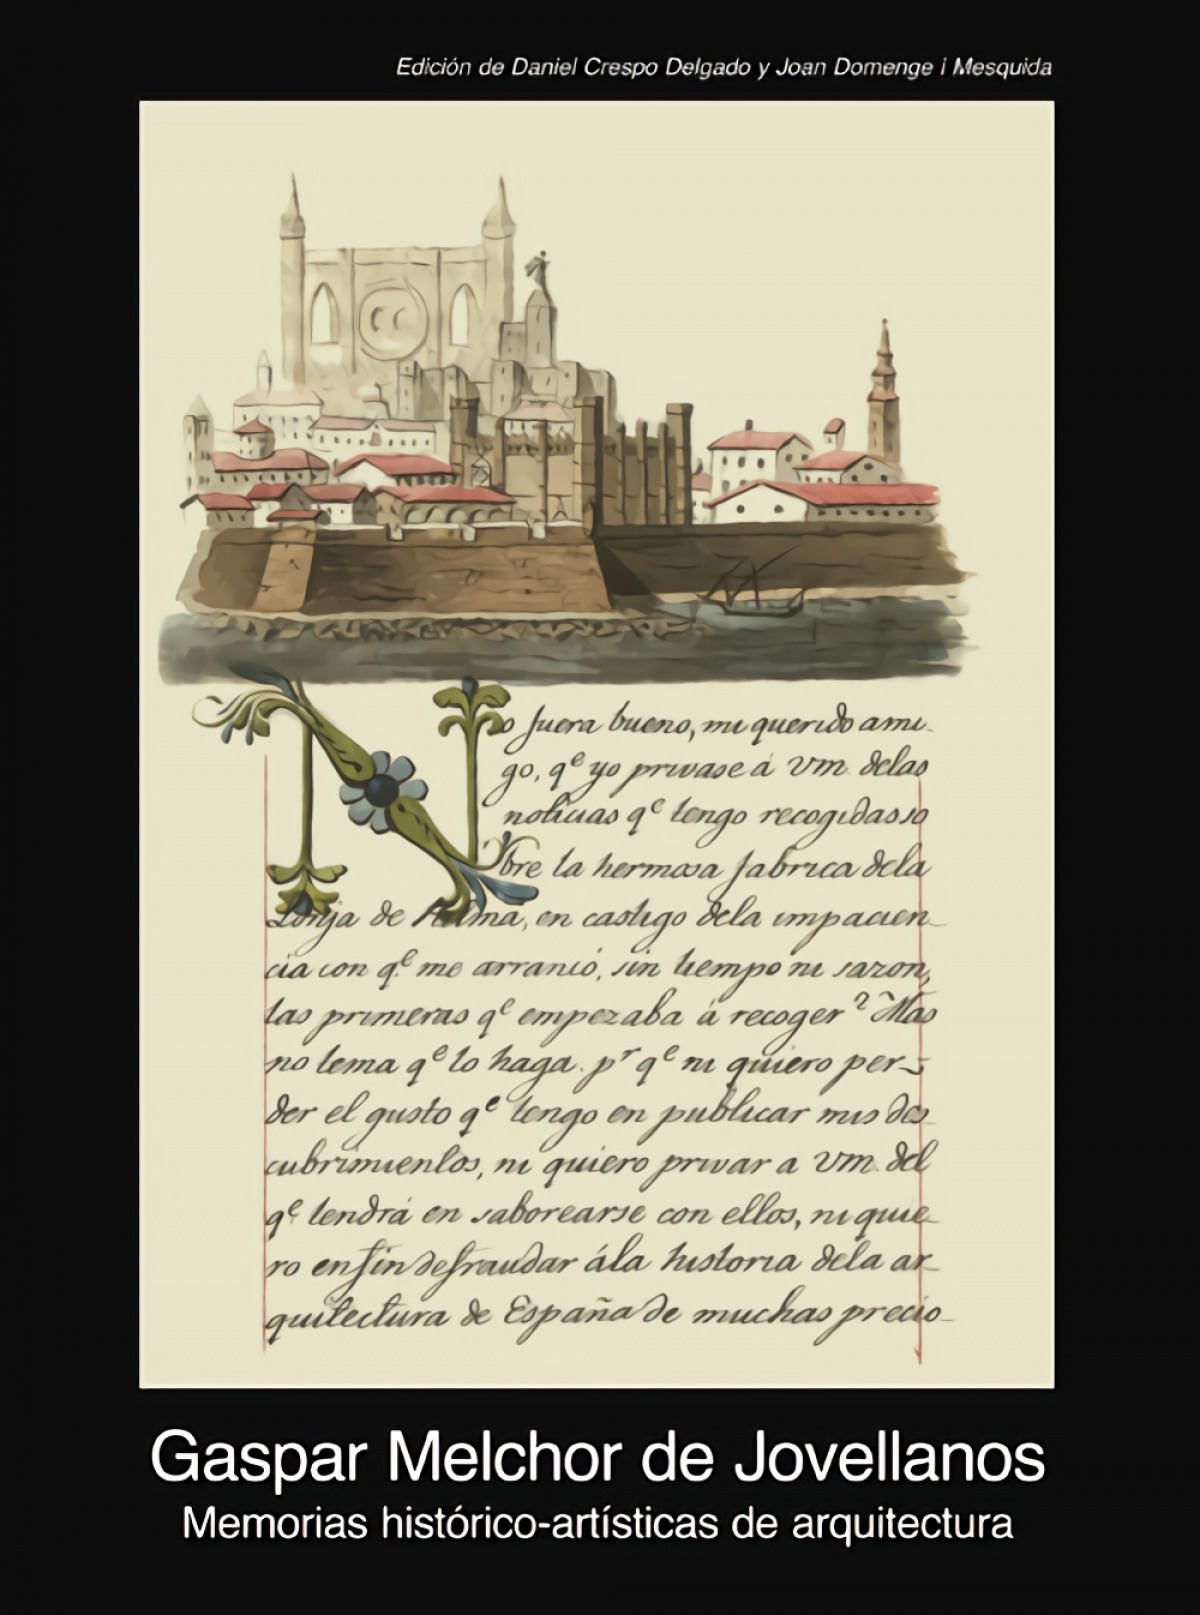 Edición de Daniel Crespo Delgado y Joan Domenge i Mesquida
No fuera bueno, mi querido ami-
go, qe yo privase á vm delas
noticias qe tengo recogidas so
bre la hermosa fabrica dela
Lonja de Palma, en castigo dela impacien-
cia con qe me arrancó, sin tiempo ni sazon,
las primeras qe empezaba á recoger? Mas
no tema qe lo haga. pr qe ni quiero per-
der el gusto qe tengo en publicar mis des-
cubrimientos, ni quiero privar a vm del
qe tendrá en saborearse con ellos, ni quie-
ro en fin defraudar ála historia dela ar-
quitectura de España de muchas precio-
Gaspar Melchor de Jovellanos
Memorias histórico-artísticas de arquitectura